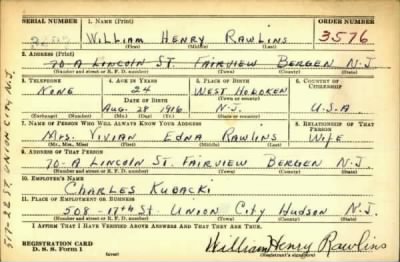 SERIAL NUMBER 1. NAME (Print) ORDER NUMBER
WILLIAM HENRY RAWLINS 3576
(First) (Middle) (Last)
2. ADDRESS (Print)
70-A LINCOLN ST. FAIRVIEW BERGEN N.J.
(Number and street or R. F. D. number) (Town) (County) (State)
3. TELEPHONE 4. AGE IN YEARS 5. PLACE OF BIRTH 6. COUNTRY OF CITIZENSHIP
NONE 24 WEST HOBOKEN
DATE OF BIRTH (Town or county)
AUG. 28 1916 N.J. U-S-A
(Mo.) (Day) (Yr.) (State or country)
7. NAME OF PERSON WHO WILL ALWAYS KNOW YOUR ADDRESS 8. RELATIONSHIP OF THAT PERSON
MRS. VIVIAN EDNA RAWLINS WIFE
(Mr., Mrs., Miss) (First) (Middle) (Last)
9. ADDRESS OF THAT PERSON
70-A LINCOLN ST. FAIRVIEW BERGEN N.J.
(Number and street or R. F. D. number) (Town) (County) (State)
10. EMPLOYER'S NAME
CHARLES KUBACKI
11. PLACE OF EMPLOYMENT OR BUSINESS
508-17th St. UNION CITY HUDSON N.J.
(Number and street or R. F. D. number) (Town) (County) (State)
I AFFIRM THAT I HAVE VERIFIED ABOVE ANSWERS AND THAT THEY ARE TRUE.
REGISTRATION CARD
D. S. S. Form 1 (over) William Henry Rawlins
(Registrant's signature)
ST. UNION CITY N.J.